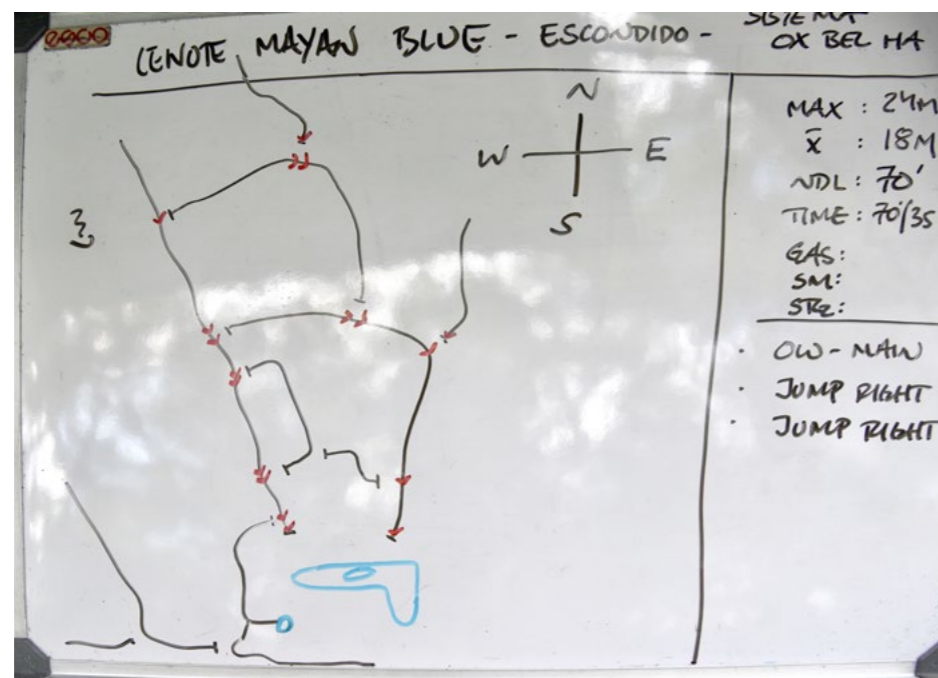 CENOTE MAYAN BLUE - ESCONDIDO -
SISTEMA
OX BEL HA
N
W E
S
MAX : 24M
x̄ : 18M
NDL : 70'
TIME : 70'/35
GAS:
SM:
OW - MAIN
JUMP RIGHT
JUMP RIGHT